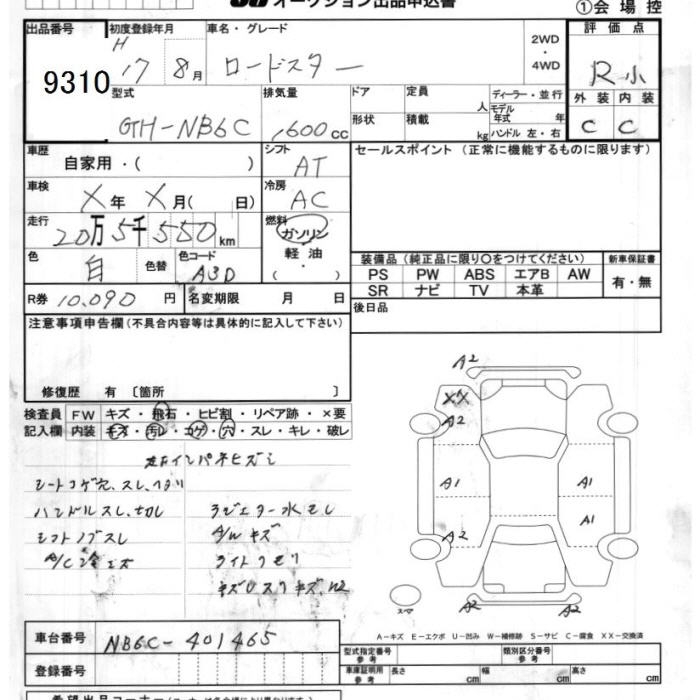 オークション出品申込書
①会場控
出品番号
9310
初度登録年月
H
17 8月
車名・グレード
ロードスター
2WD
・
4WD
評価点
R小
外装 内装
C C
型式
GTH-NB6C
排気量
1600cc
ドア
形状
定員 人
積載 kg
ディーラー・並行
モデル年式 年
ハンドル 左・右
車歴
自家用・( )
シフト
AT
車検
X年 X月( 日)
冷房
AC
走行
20万5千550km
燃料
ガソリン
・
軽油
( )
色
白
色替
色コード
A3D
R券 10,090 円
名変期限 月 日
セールスポイント (正常に機能するものに限ります)
装備品 (純正品に限り○をつけてください)
新車保証書
PS PW ABS エアB AW
SR ナビ TV 本革
有・無
後日品
注意事項申告欄(不具合内容等は具体的に記入して下さい)
修復歴 有 〔箇所 〕
検査員記入欄
FW キズ・飛石・ヒビ割・リペア跡・×要
内装 キズ・汚レ・コゲ・穴・スレ・キレ・破レ
インパネヒズミ
シートコゲ穴、スレ、ヘタリ
ハンドルスレ、切レ
シフトノブスレ
ラジエター水モレ
A/Wキズ
ライトクモリ
A2
XX
A2
A1
A1
A1
A2
A2
A2
スマ
A-キズ E-エクボ U-凹み W-補修跡 S-サビ C-腐食 XX-交換済
車台番号 NB6C-401465
登録番号
型式指定番号 参考
類別区分番号 参考
車庫証明用 参考
長さ cm
幅 cm
高さ cm